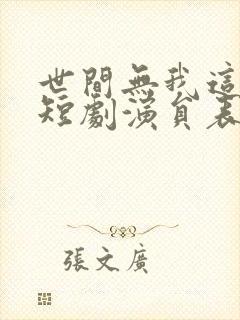 世間無我這
短劇演員表
張文廣